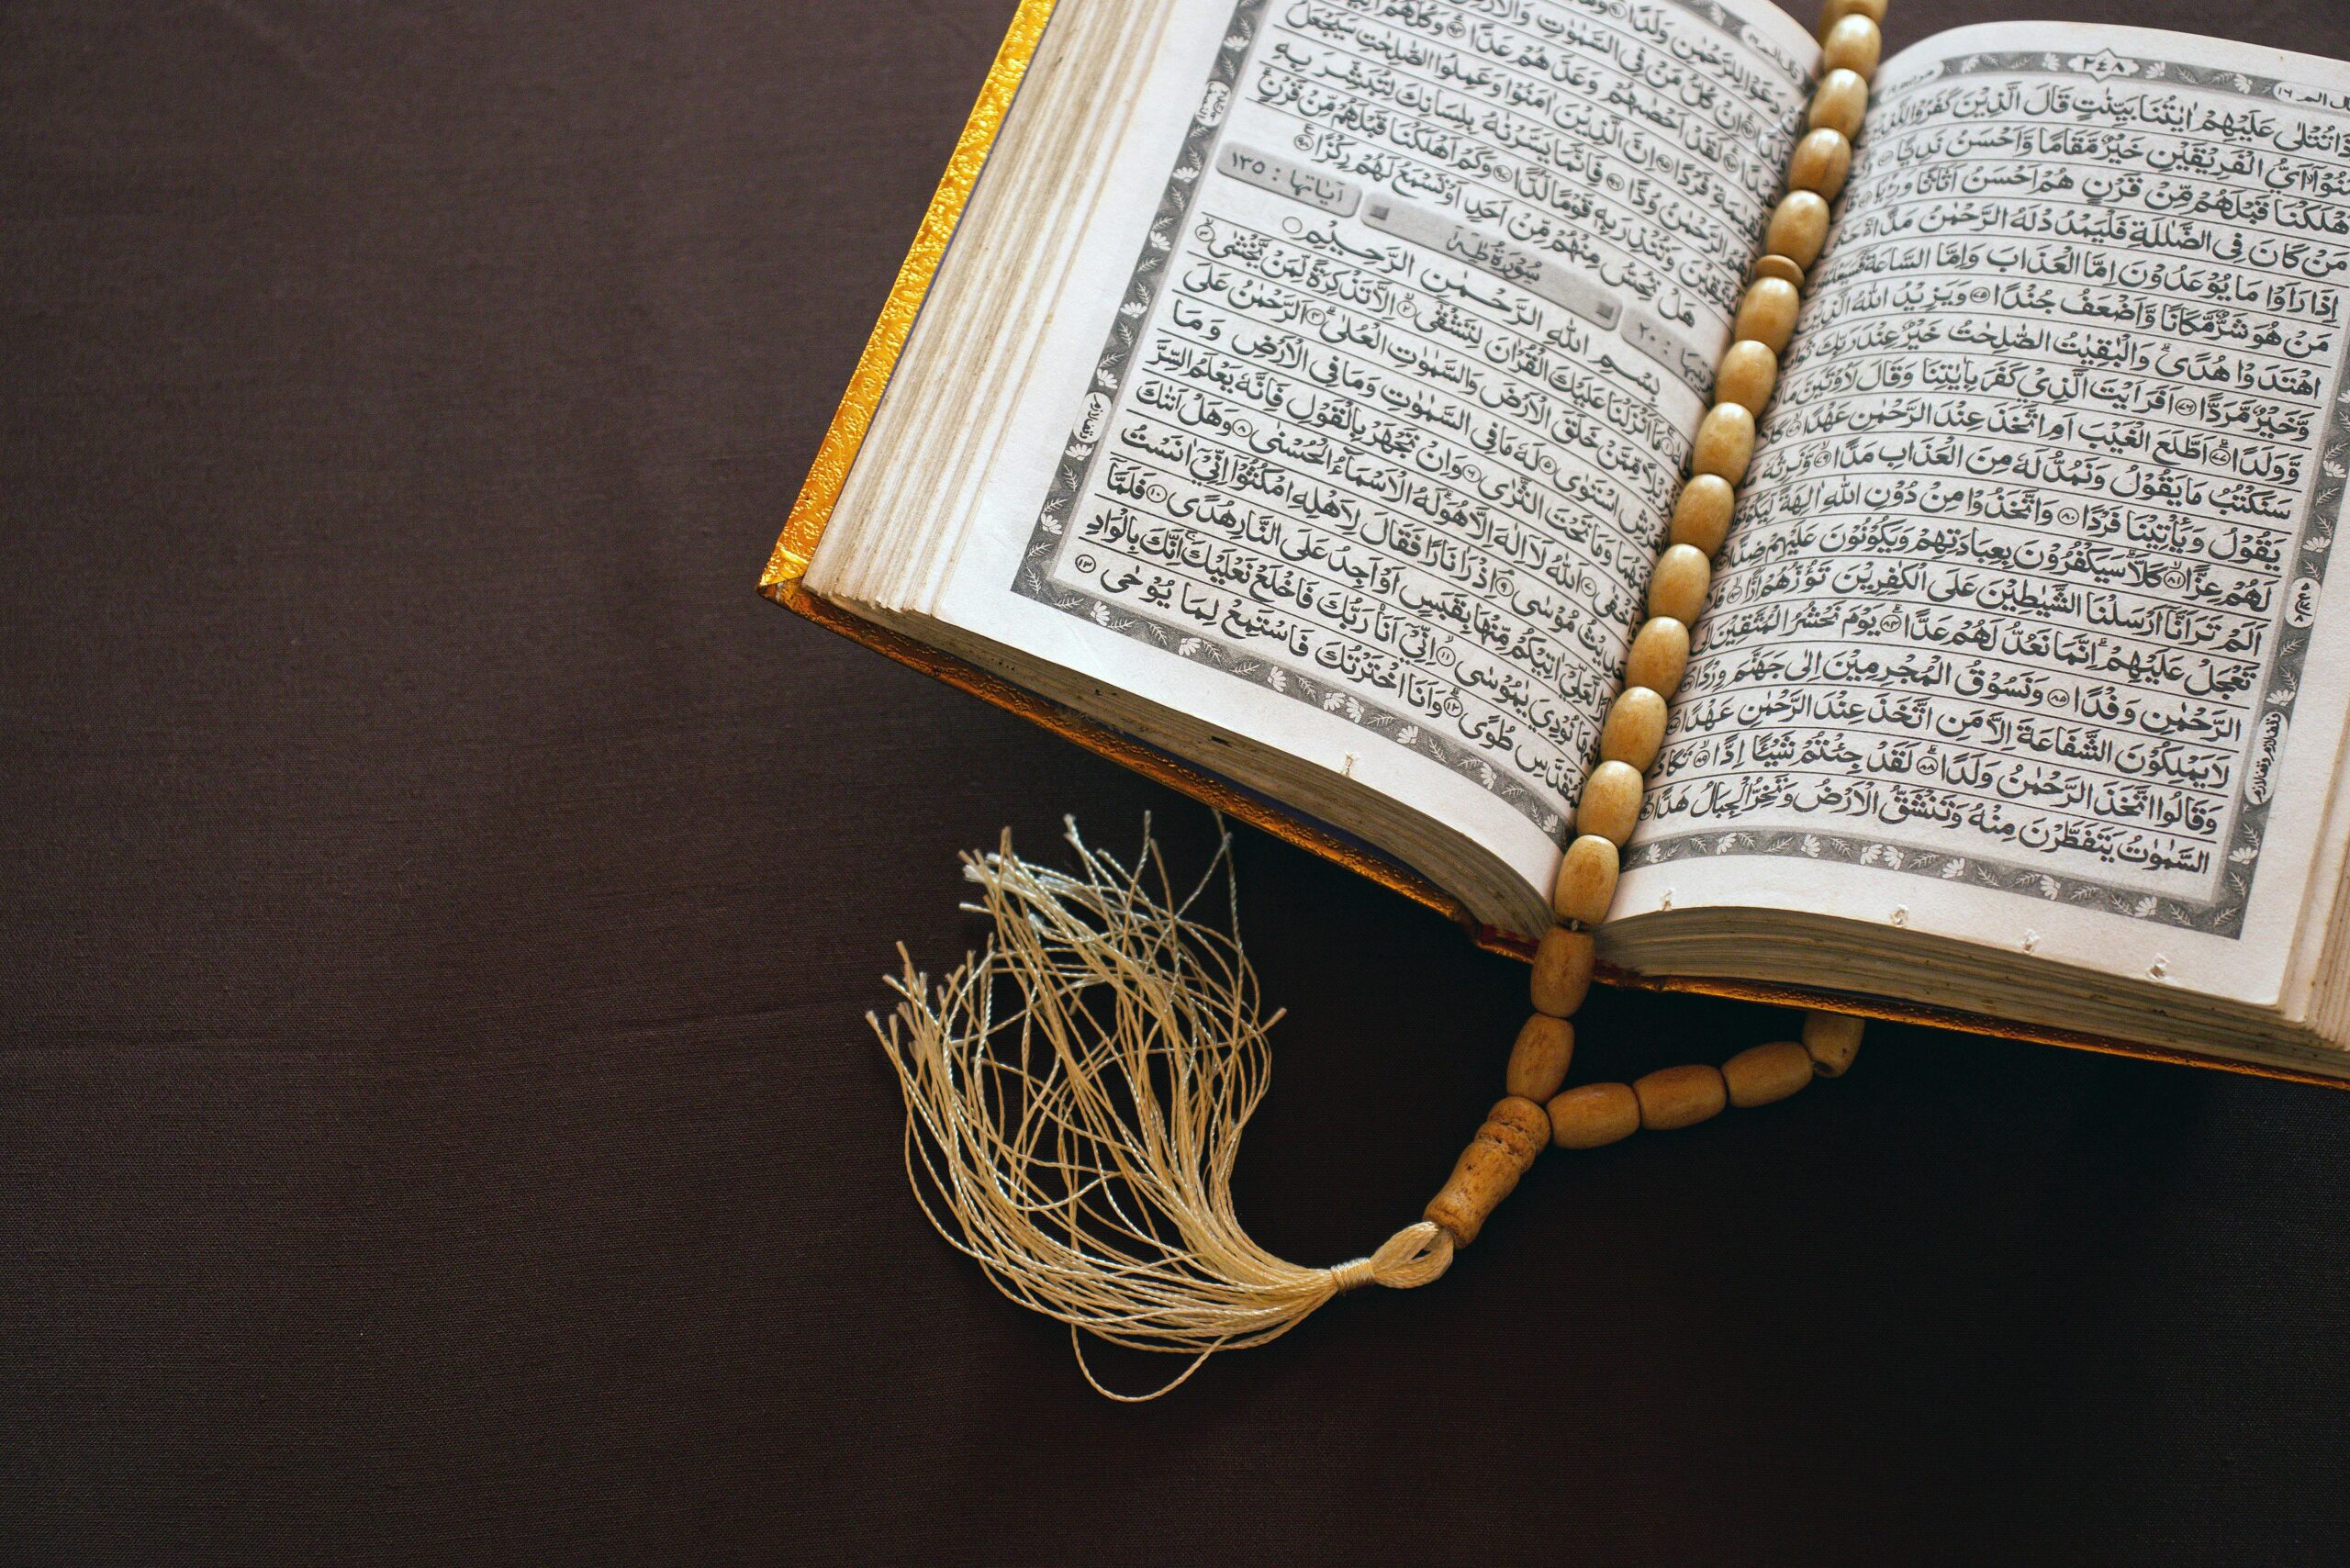 ٢٤٨
عَلَيْهِمْ اٰيٰتُنَا بَيِّنٰتٍ قَالَ الَّذِيْنَ كَفَرُوْا
اَيُّ الْفَرِيْقَيْنِ خَيْرٌ مَّقَامًا وَّاَحْسَنُ نَدِيًّا
قَبْلَهُمْ مِّنْ قَرْنٍ هُمْ اَحْسَنُ اَثَاثًا وَّرِءْيًا
مَنْ كَانَ فِى الضَّلٰلَةِ فَلْيَمْدُدْ لَهُ الرَّحْمٰنُ مَدًّا
اِذَا رَاَوْا مَا يُوْعَدُوْنَ اِمَّا الْعَذَابَ وَاِمَّا السَّاعَةَ
مَنْ هُوَ شَرٌّ مَّكَانًا وَّاَضْعَفُ جُنْدًا ٧٥ وَيَزِيْدُ اللّٰهُ الَّذِيْنَ
اهْتَدَوْا هُدًى وَالْبٰقِيٰتُ الصّٰلِحٰتُ خَيْرٌ عِنْدَ رَبِّكَ
وَّخَيْرٌ مَّرَدًّا ٧٦ اَفَرَءَيْتَ الَّذِيْ كَفَرَ بِاٰيٰتِنَا وَقَالَ لَاُوْتَيَنَّ مَالًا
وَّوَلَدًا ٧٧ اَطَّلَعَ الْغَيْبَ اَمِ اتَّخَذَ عِنْدَ الرَّحْمٰنِ عَهْدًا
سَنَكْتُبُ مَا يَقُوْلُ وَنَمُدُّ لَهٗ مِنَ الْعَذَابِ مَدًّا ٧٩ وَّنَرِثُهٗ
يَقُوْلُ وَيَأْتِيْنَا فَرْدًا ٨٠ وَاتَّخَذُوْا مِنْ دُوْنِ اللّٰهِ اٰلِهَةً
لَهُمْ عِزًّا ٨١ كَلَّا سَيَكْفُرُوْنَ بِعِبَادَتِهِمْ وَيَكُوْنُوْنَ عَلَيْهِمْ ضِدًّا
اَلَمْ تَرَ اَنَّا اَرْسَلْنَا الشَّيٰطِيْنَ عَلَى الْكٰفِرِيْنَ تَؤُزُّهُمْ اَزًّا ٨٣ فَلَا
تَعْجَلْ عَلَيْهِمْ اِنَّمَا نَعُدُّ لَهُمْ عَدًّا ٨٤ يَوْمَ نَحْشُرُ الْمُتَّقِيْنَ اِلَى
الرَّحْمٰنِ وَفْدًا ٨٥ وَنَسُوْقُ الْمُجْرِمِيْنَ اِلٰى جَهَنَّمَ وِرْدًا
لَا يَمْلِكُوْنَ الشَّفَاعَةَ اِلَّا مَنِ اتَّخَذَ عِنْدَ الرَّحْمٰنِ عَهْدًا
وَقَالُوا اتَّخَذَ الرَّحْمٰنُ وَلَدًا ٨٨ لَقَدْ جِئْتُمْ شَيْئًا اِدًّا ٨٩ تَكَادُ
السَّمٰوٰتُ يَتَفَطَّرْنَ مِنْهُ وَتَنْشَقُّ الْاَرْضُ وَتَخِرُّ الْجِبَالُ هَدًّا
دَعَوْا لِلرَّحْمٰنِ وَلَدًا
اِنْ كُلُّ مَنْ فِى السَّمٰوٰتِ وَالْاَرْضِ
لَقَدْ اَحْصٰىهُمْ وَعَدَّهُمْ عَدًّا ٩٤ وَكُلُّهُمْ
فَرْدًا ٩٥ اِنَّ الَّذِيْنَ اٰمَنُوْا وَعَمِلُوا الصّٰلِحٰتِ سَيَجْعَلُ
لَهُمُ الرَّحْمٰنُ وُدًّا ٩٦ فَاِنَّمَا يَسَّرْنٰهُ بِلِسَانِكَ لِتُبَشِّرَ بِهِ
الْمُتَّقِيْنَ وَتُنْذِرَ بِهٖ قَوْمًا لُّدًّا ٩٧ وَكَمْ اَهْلَكْنَا قَبْلَهُمْ مِّنْ قَرْنٍ
هَلْ تُحِسُّ مِنْهُمْ مِّنْ اَحَدٍ اَوْ تَسْمَعُ لَهُمْ رِكْزًا ٩٨
سُوْرَةُ طٰهٰ
آيَاتُهَا : ١٣٥
بِسْمِ اللّٰهِ الرَّحْمٰنِ الرَّحِيْمِ
مَا اَنْزَلْنَا عَلَيْكَ الْقُرْاٰنَ لِتَشْقٰى ٢ اِلَّا تَذْكِرَةً لِّمَنْ يَّخْشٰى ٣
مِّمَّنْ خَلَقَ الْاَرْضَ وَالسَّمٰوٰتِ الْعُلٰى ٤ اَلرَّحْمٰنُ عَلَى
الْعَرْشِ اسْتَوٰى ٥ لَهٗ مَا فِى السَّمٰوٰتِ وَمَا فِى الْاَرْضِ وَمَا
بَيْنَهُمَا وَمَا تَحْتَ الثَّرٰى ٦ وَاِنْ تَجْهَرْ بِالْقَوْلِ فَاِنَّهٗ يَعْلَمُ السِّرَّ
وَاَخْفٰى ٧ اَللّٰهُ لَا اِلٰهَ اِلَّا هُوَ لَهُ الْاَسْمَاءُ الْحُسْنٰى ٨ وَهَلْ اَتٰىكَ
حَدِيْثُ مُوْسٰى ٩ اِذْ رَاٰ نَارًا فَقَالَ لِاَهْلِهِ امْكُثُوْا اِنِّيْ اٰنَسْتُ
لَّعَلِّيْ اٰتِيْكُمْ مِّنْهَا بِقَبَسٍ اَوْ اَجِدُ عَلَى النَّارِ هُدًى ١٠ فَلَمَّا
اَتٰىهَا نُوْدِيَ يٰمُوْسٰى ١١ اِنِّيْ اَنَا رَبُّكَ فَاخْلَعْ نَعْلَيْكَ اِنَّكَ بِالْوَادِ
الْمُقَدَّسِ طُوًى ١٢ وَاَنَا اخْتَرْتُكَ فَاسْتَمِعْ لِمَا يُوْحٰى ١٣